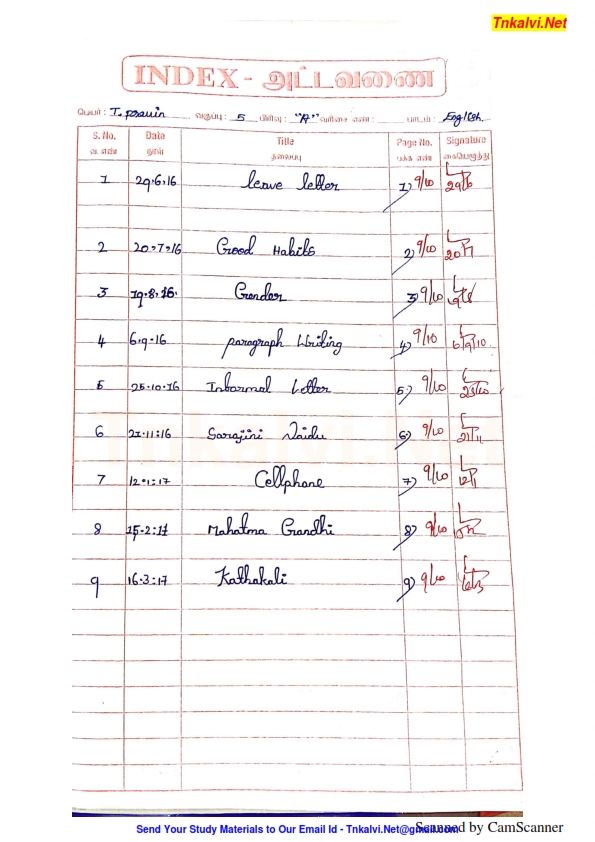 Tnkalvi.Net
INDEX - அட்டவணை
பெயர் : T. pravin வகுப்பு : 5 பிரிவு : "A" வரிசை எண் : பாடம் : English.
S. No. Date Title Page No. Signature
வ. எண் நாள் தலைப்பு பக்க எண் கையெழுத்து
1 29.6.16 leave letter 1) 9/10 29/6
2 20.7.16 Good Habits 2) 9/10 20/7
3 19.8.16. Gender 3) 9/10 19/8
4 6.9.16 paragraph Writing 4) 9/10
5 25.10.16 Inbormal Letter 5) 9/10 25/10
6 21.11.16 Sarajini Naidu 6) 9/10 21/11
7 12.1.17 Cellphone 7) 9/10 12/1
8 15.2.17 Mahatma Grandhi 8) 9/10
9 16.3.17 Kathakali 9) 9/10 16/3
Tnkalvi.Net
Send Your Study Materials to Our Email Id - Tnkalvi.Net@gmail.com
Scanned by CamScanner